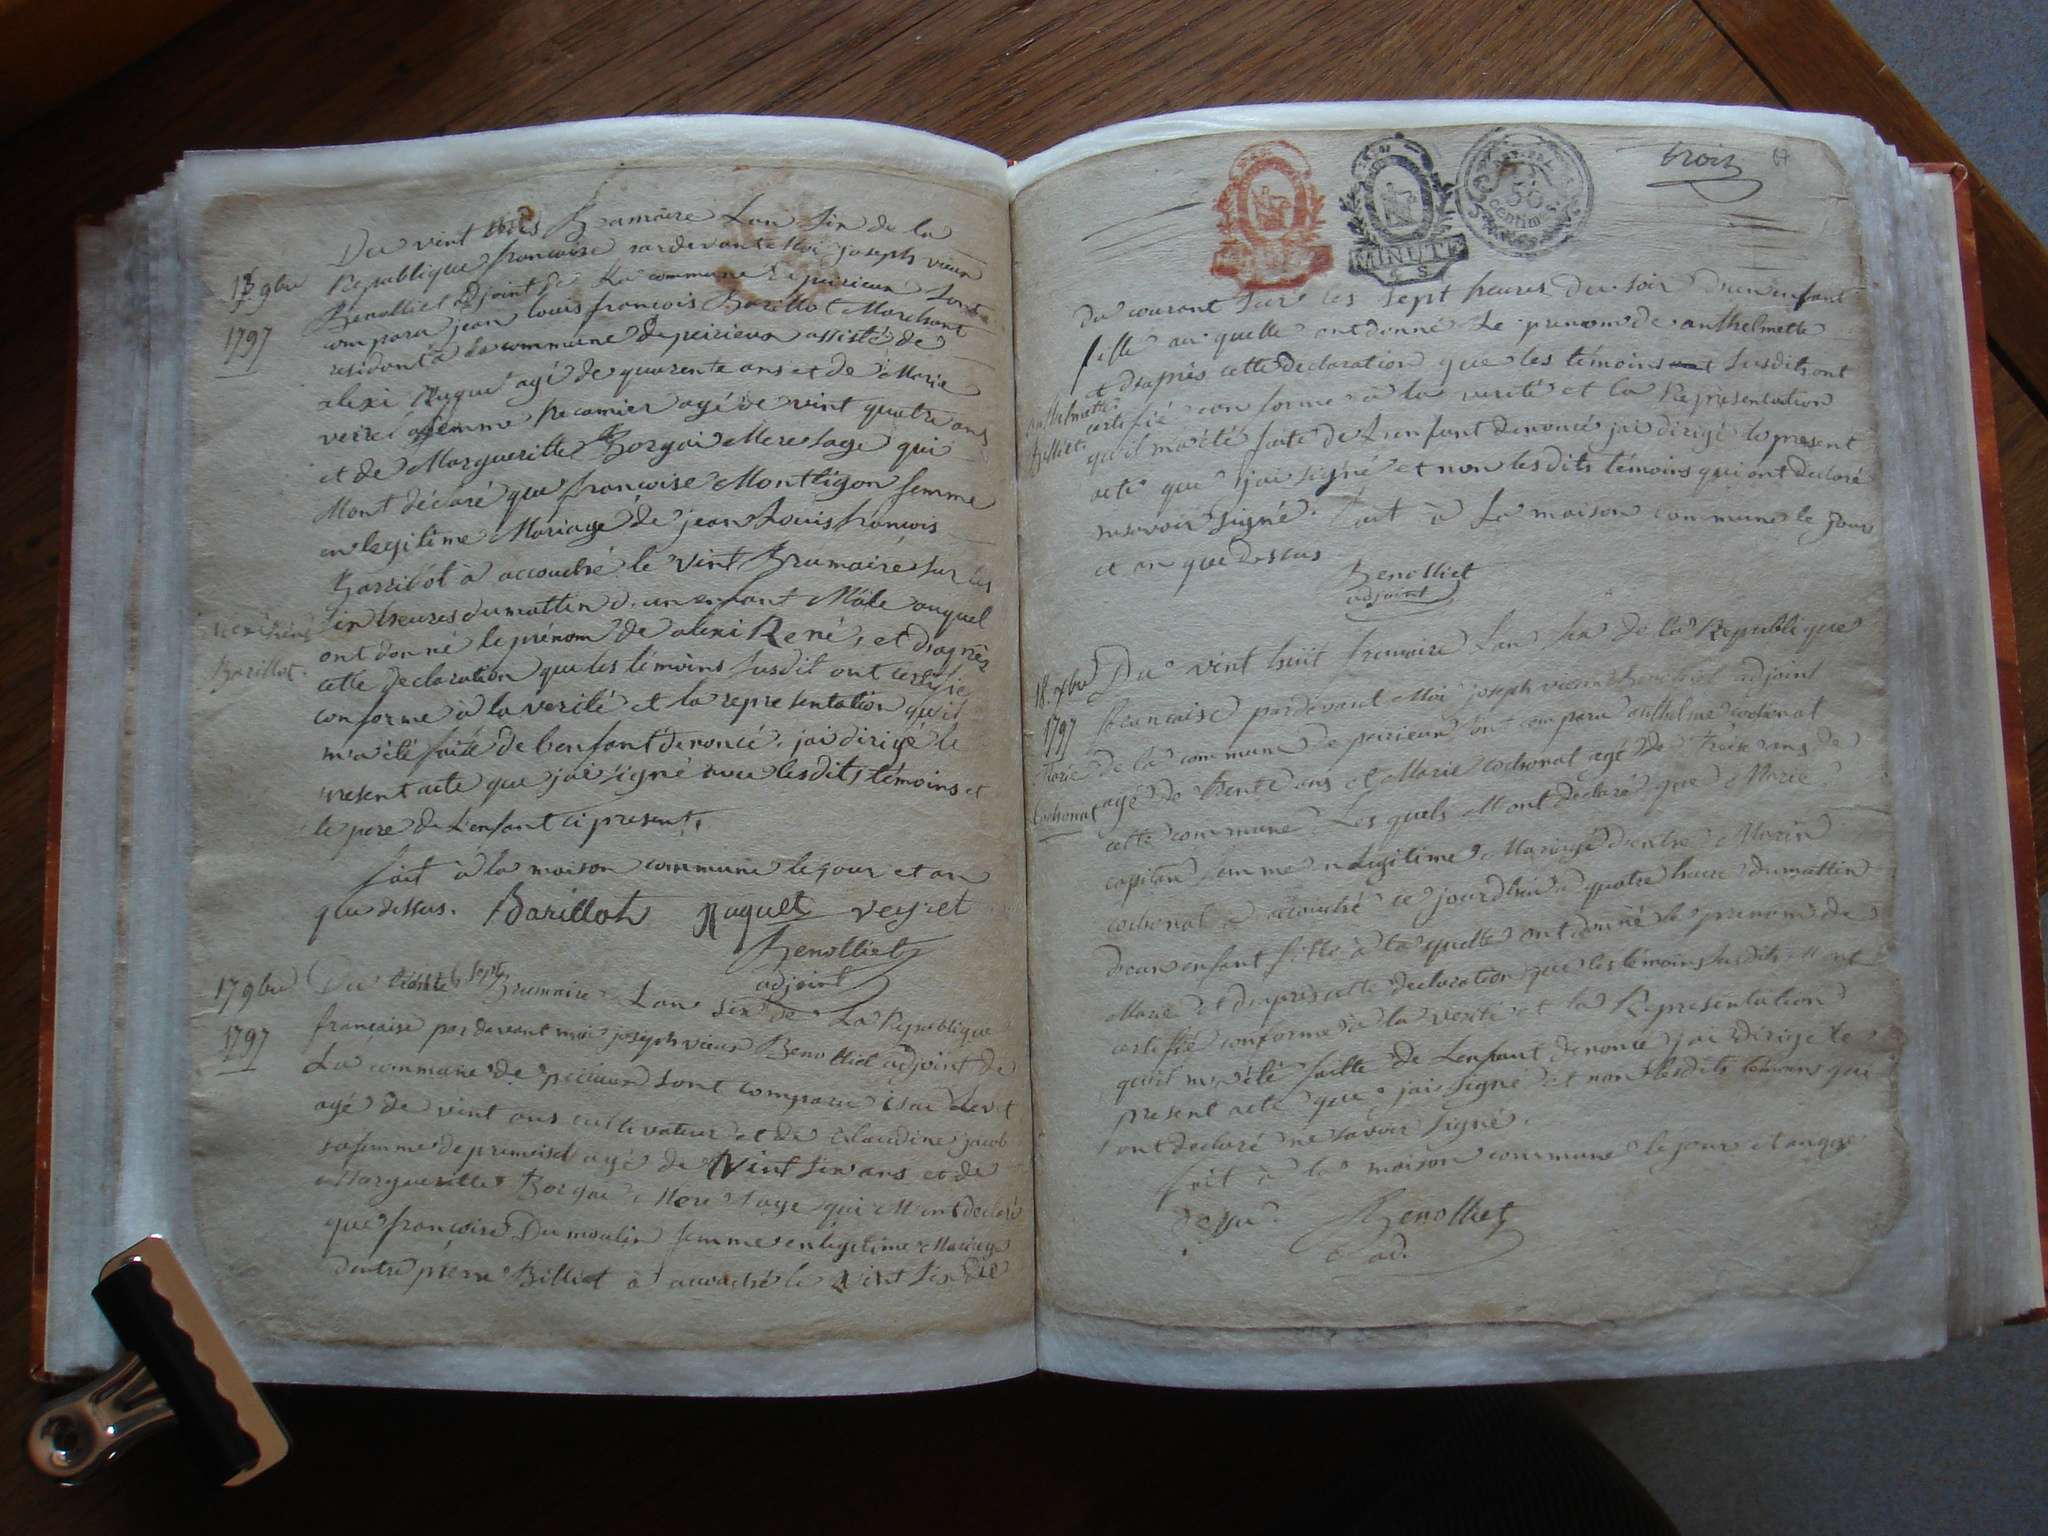 Du vint trois Brumaire Lan Six de la
13 9bre
Republique francoise pardevant Moi joseph vieux
Benolliet adjoint de La commune de peirieux Sont
1797
comparu jean louis francois Barillot Marchant
residont a la commune de peirieux assisté de
alexi Ruquet agé de quarente ans et de Marie
veiret femme Recamier agé de vint quatre ans
et de Margueritte Borgai Mere Sage qui
Mont déclaré que francoise Montligon femme
en legitime Mariage de jean Louis francois
Barribot à accouché le vint Brumaire Sur les
Six heures du mattin d'un enfant Mâle auquel
ont donné le prénom de alexi René, et d'apres
Barillot.
cette declaration que les témoins Susdit ont certifié
conforme à la verité et la representation qu'il
m'a été faite de l'enfant denoncé. jai dirigé le
present acte que jai signé avec lesdits témoins et
le pere de L'enfant ci present.
fait à la maison commune le jour et an
que dessus. Barillot Ruquet veyret
Benolliet
adjoint
17 9bre
Du vint Sept Brumaire Lan Six de La Republique
1797
francaise pardevant moi joseph vieux Benolliet adjoint de
La commune de peirieux Sont comparu
agé de vint ans cultivateur et de Claudine jacob
sa femme de premeisel agé de vint Six ans et de
Marguerite Borgai Mere Sage qui M'ont declaré
que francoise Dumoulin femme en legitime Mariage
dentre pierre Billiet à accouché le vint Six
trois
67
50
centimes
MINUTE
du courant Sur les Sept heures du soir d'un enfant
fille au quelle ont donné Le prenom de anthelmette
et d'après cette declaration que les témoins Susdit ont
anthelmette
certifié conforme à la verité et la Representation
Billiet.
qu'il m'a été faite de L'enfant denoncé jai dirigé le present
acte que jai signé et non lesdits témoins qui ont declaré
ne savoir signé. fait à La maison commune le jour
et an que dessus
Benolliet
adjoint
18 xbre
Du vint huit frimaire Lan Six de la Republique
1797
francaise pardevant Moi joseph vieux Benolliet adjoint
Marie
de la commune de peirieux ont comparu anthelme cochonat
cochonat
agé de trente ans et Marie cochonat agé de treize ans de
cette commune Les quels Mont declaré que Marie
capitan femme en Legitime Mariage dentre Marin
cochonat à accouché ce jourdhui à quatre heure du mattin
d'un enfant fille à la quelle ont donné le prenom de
Marie et d'apres cette declaration que les témoins Susdits M'ont
certifié conforme à la verité et la Representation
qu'il m'a été faitte de Lenfant denoncé jai dirigé le
present acte que jai signé et non lesdits témoins qui
ont declaré ne savoir signé.
fait à la maison commune le jour et an que
dessu. Benolliet
ad.